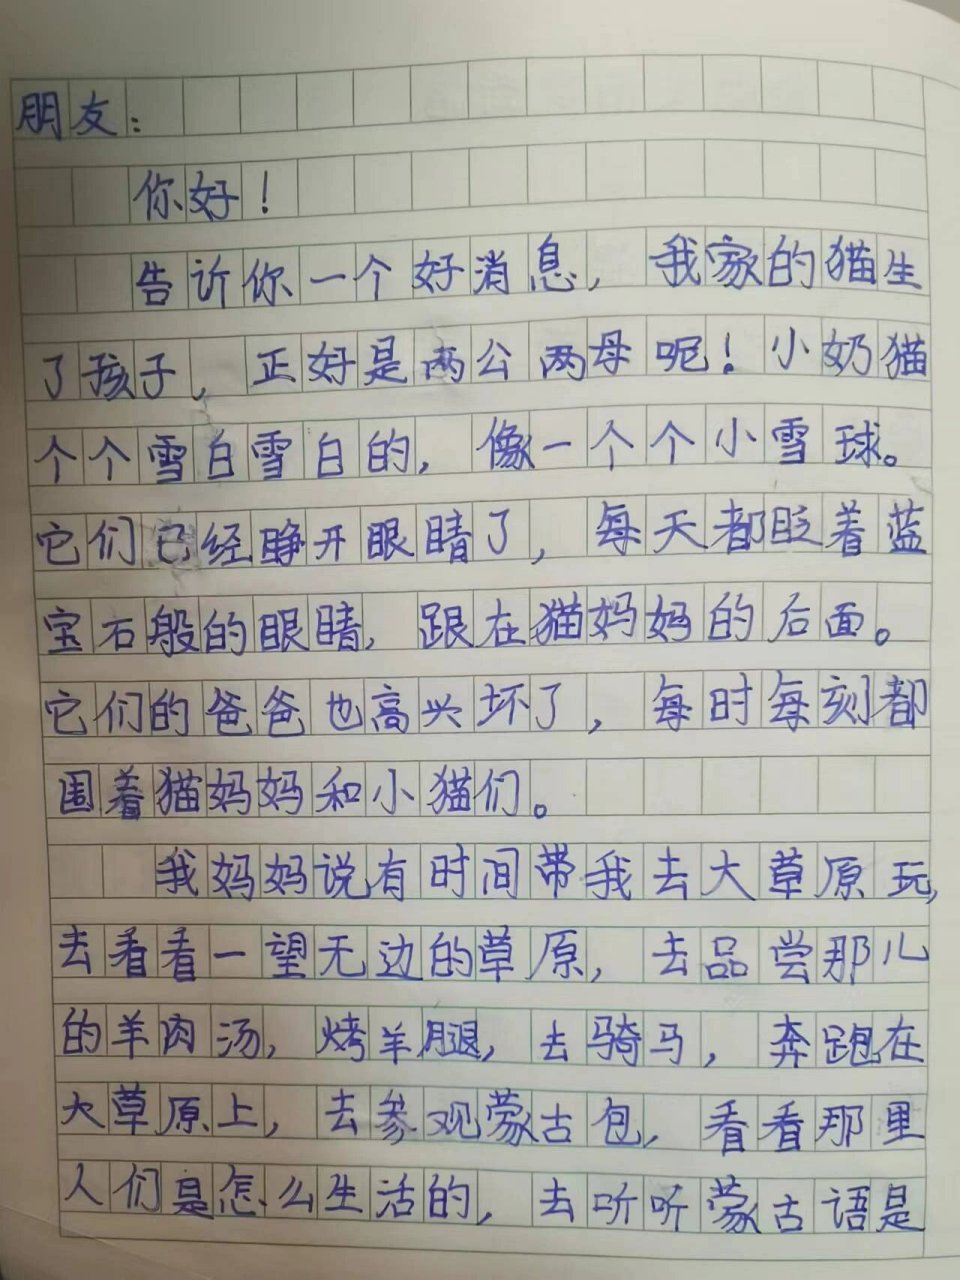 朋友：
你好！
告诉你一个好消息，我家的猫生
了孩子，正好是两公两母呢！小奶猫
个个雪白雪白的，像一个个小雪球。
它们已经睁开眼睛了，每天都眨着蓝
宝石般的眼睛，跟在猫妈妈的后面。
它们的爸爸也高兴坏了，每时每刻都
围着猫妈妈和小猫们。
我妈妈说有时间带我去大草原玩，
去看看一望无边的草原，去品尝那儿
的羊肉汤，烤羊腿，去骑马，奔跑在
大草原上，去参观蒙古包，看看那里
人们是怎么生活的，去听听蒙古语是